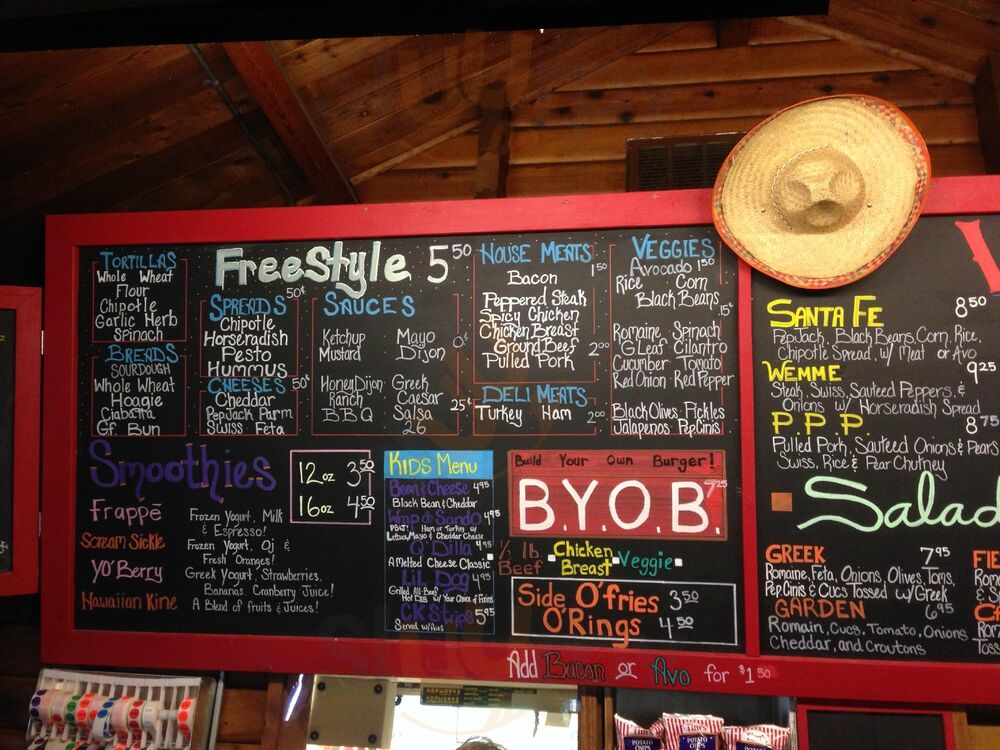 FreeStyle 5⁵⁰
TORTILLAS
Whole Wheat
Flour
Chipotle
Garlic Herb
Spinach
BREADS
SOURDOUGH
Whole Wheat
Hoagie
Ciabatta
Gf. Bun
SPREADS 50¢
Chipotle
Horseradish
Pesto
Hummus
CHEESES 50¢
Cheddar
PepJack Parm
Swiss Feta
SAUCES
Ketchup Mayo 0¢
Mustard Dijon
Honey Dijon Greek
Ranch Caesar 25¢
BBQ Salsa
26
HOUSE MEATS
Bacon 1⁵⁰
Peppered Steak
Spicy Chicken
Chicken Breast
Ground Beef 2⁰⁰
Pulled Pork
DELI MEATS
Turkey Ham 2⁰⁰
VEGGIES
Avocado 1⁵⁰
Rice Corn
Black Beans .15¢
Romaine Spinach
G.Leaf Cilantro
Cucumber Tomato
Red Onion Red Pepper
Black Olives Pickles
Jalapenos Pep.Cinis
Smoothies
12oz 3⁵⁰
16oz 4⁵⁰
Frappé
Frozen Yogurt, Milk
& Espresso!
Scream Sickle
Frozen Yogurt, Oj &
Fresh Oranges!
YO'Berry
Greek Yogurt, Strawberries,
Bananas, Cranberry Juice!
Hawaiian Kine
A Blend of fruits & Juices!
KIDS Menu
Bean & Cheese 4⁹⁵
Black Bean & Cheddar
Wrap or Sando 4⁹⁵
PB&J! Ham or Turkey w/
Lettuce, Mayo & Cheddar Cheese
Q'Dilla 4⁹⁵
A Melted Cheese Classic
LiL Dog 4⁹⁵
Grilled All-Beef
Hot Dog w/ Your Choice of Fixins
CK Strips 5⁹⁵
Served w/fries
Build Your Own Burger!
B.Y.O.B. 7²⁵
½ lb. Beef
Chicken Breast
Veggie
Side O'fries 3⁵⁰
O'Rings 4⁵⁰
Add Bacon or Avo for $1⁵⁰
SANTA FE 8⁵⁰
PepJack, Black Beans, Corn, Rice,
Chipotle Spread w/ Meat or Avo
WEMME 9²⁵
Steak, Swiss, Sauteed Peppers &
Onions w/ Horseradish Spread
P.P.P. 8⁷⁵
Pulled Pork, Sauteed Onions & Pears
Swiss, Rice & Pear Chutney
Salad
GREEK 7⁹⁵
Romaine, Feta, Onions, Olives, Toms,
Pep.Cinis & Cucs Tossed w/ Greek
GARDEN 6⁹⁵
Romain, Cucs, Tomato, Onions
Cheddar, and Croutons
FIE
Rom
& S
Rom
Toss
POTATO CHIPS
POTATO CHIPS
POTATO